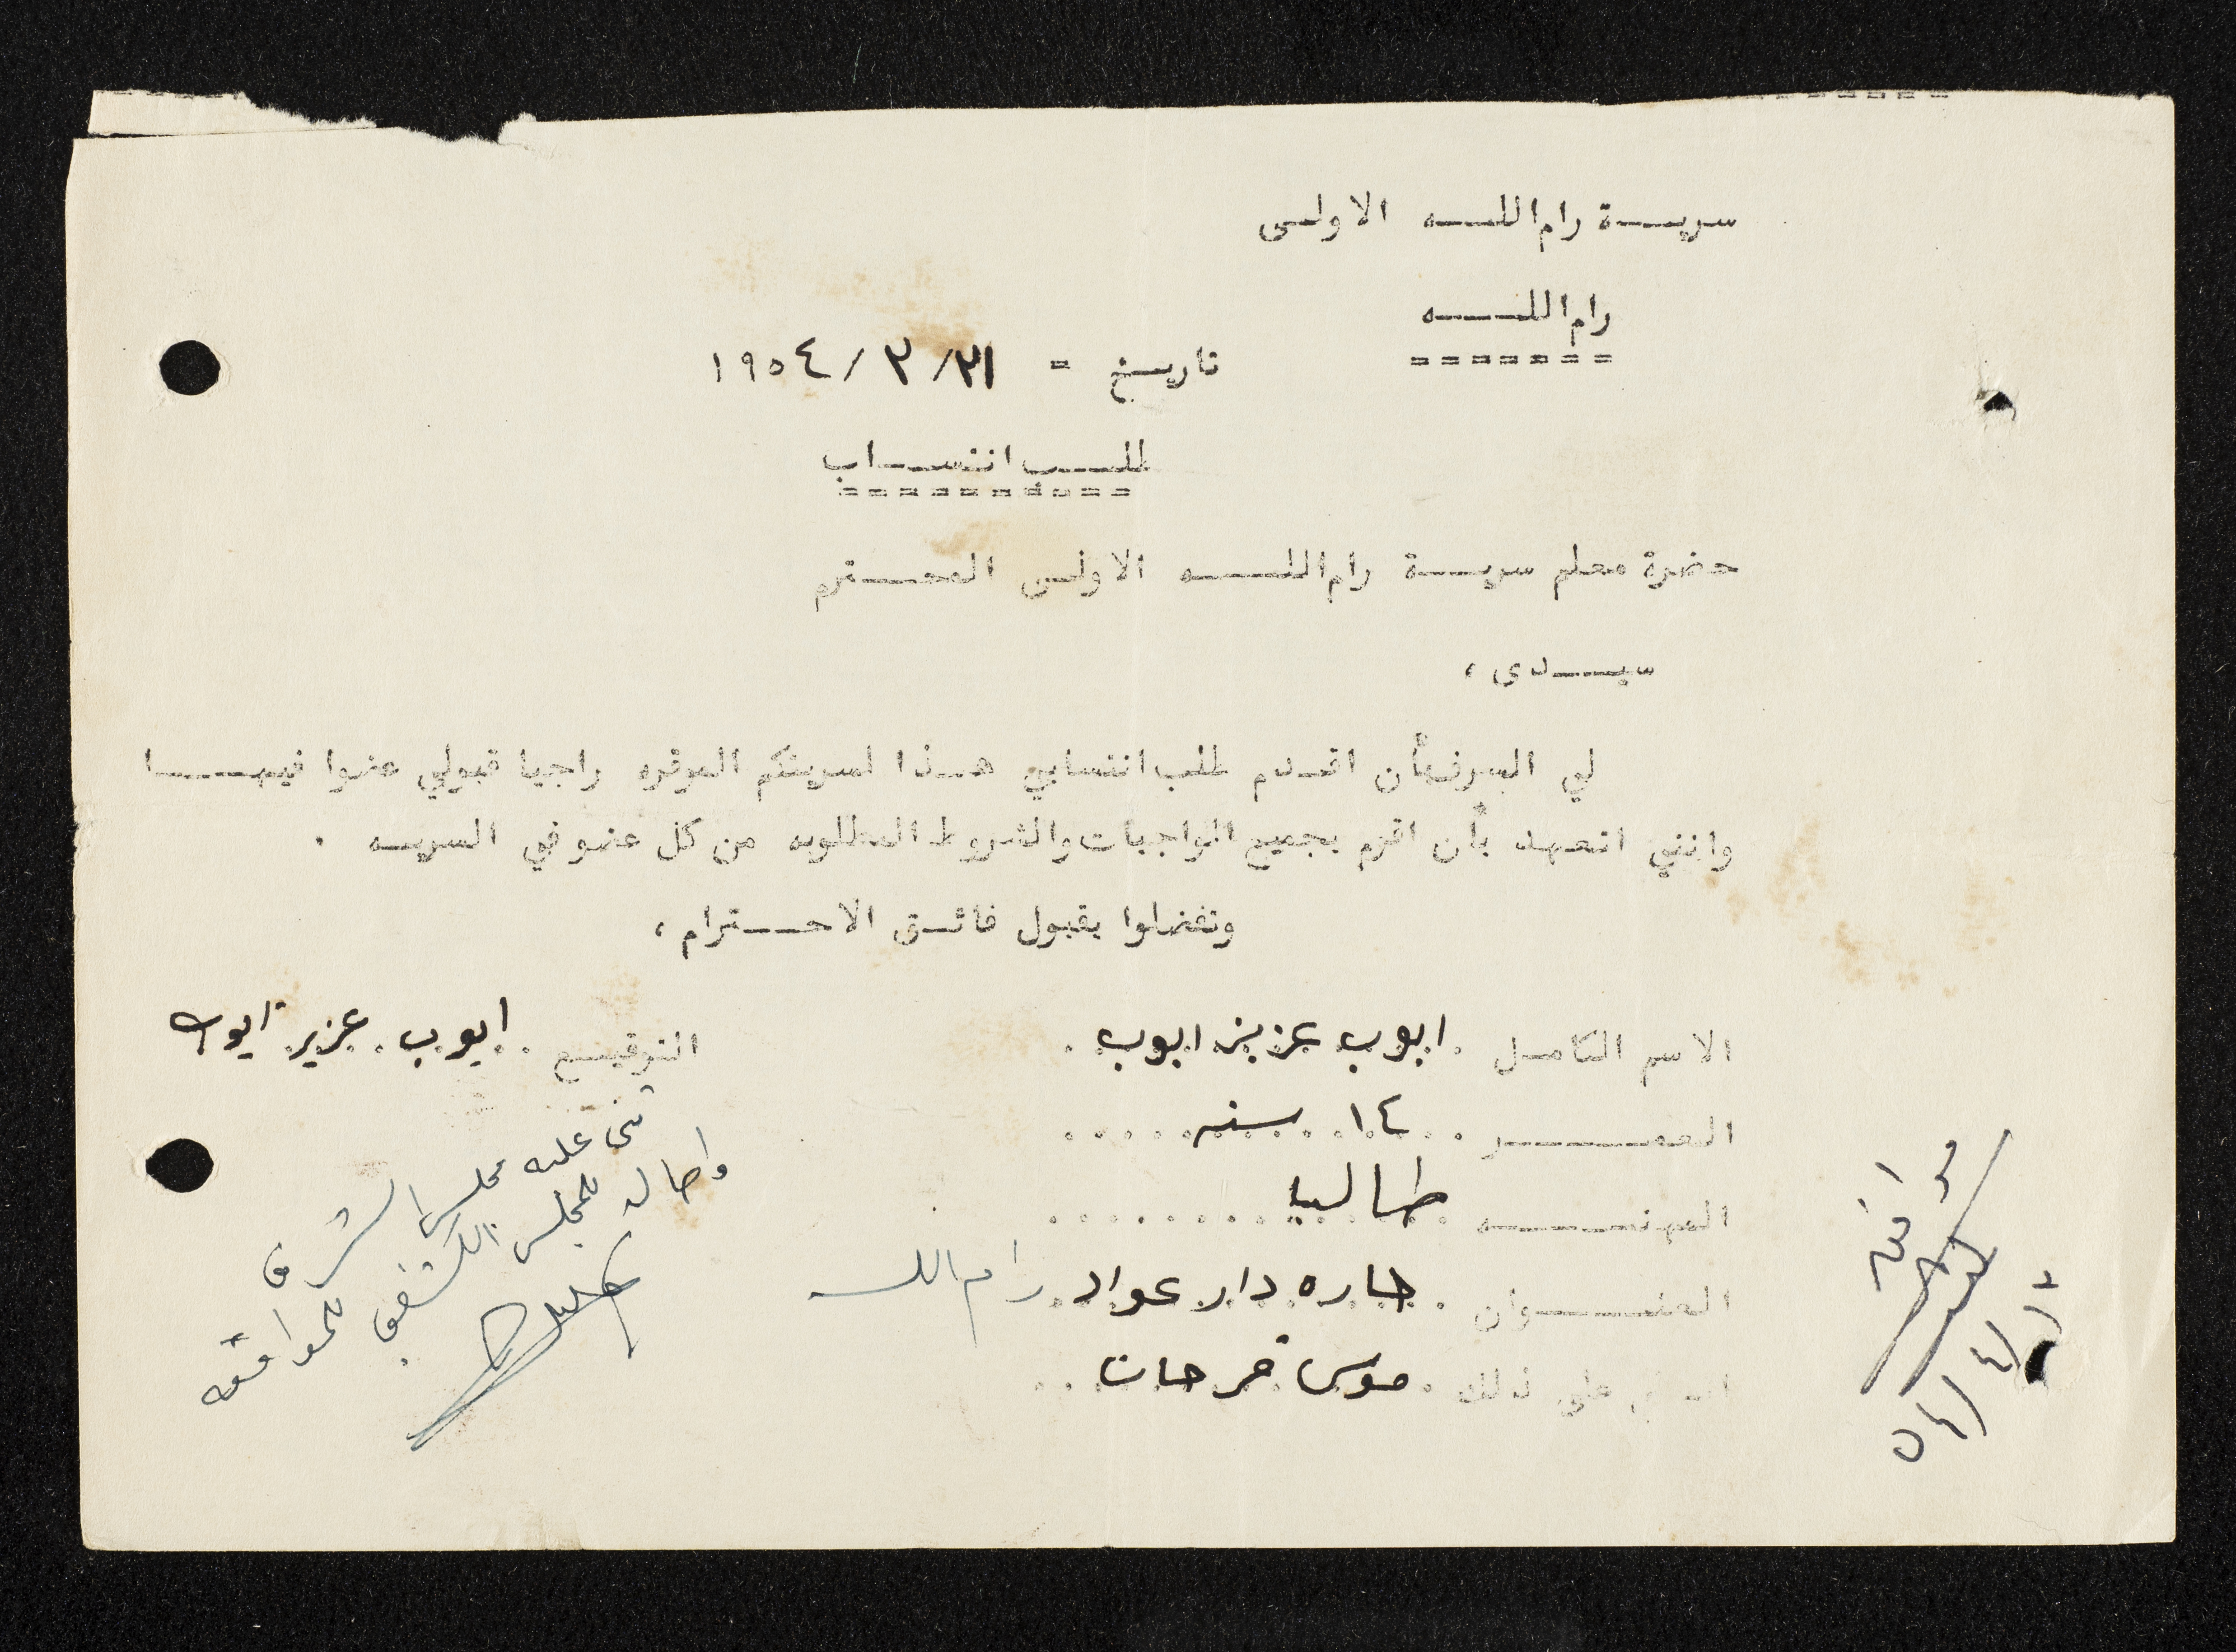 سرية رام الله الاولى
رام الله
تاريخ = ٣١/ ٣ / ١٩٥٤
طلب انتساب
حضرة معلم سرية رام الله الاولى المحترم
سيدى ،
لي الشرف بأن اقدم طلب انتسابي هذا لسريتكم الموقره راجيا قبولي عضوا فيها
وانني اتعهد بأن اقوم بجميع الواجبات والشروط المطلوبه من كل عضو في السريه .
وتفضلوا بقبول فائق الاحترام ،
الاسم الكامل . ايوب عزيز ايوب . التوقيع . ايوب عزيز ايوب
العمر . . ١٤ سنه . . . . .
المهنه طالب . . . . . . .
العنوان . حاره دار عواد رام الله
على ذلك . موسى فرحات . .
عليه مجلس الشرف
واحاله للمجلس الكشفي للموافقه
موافق